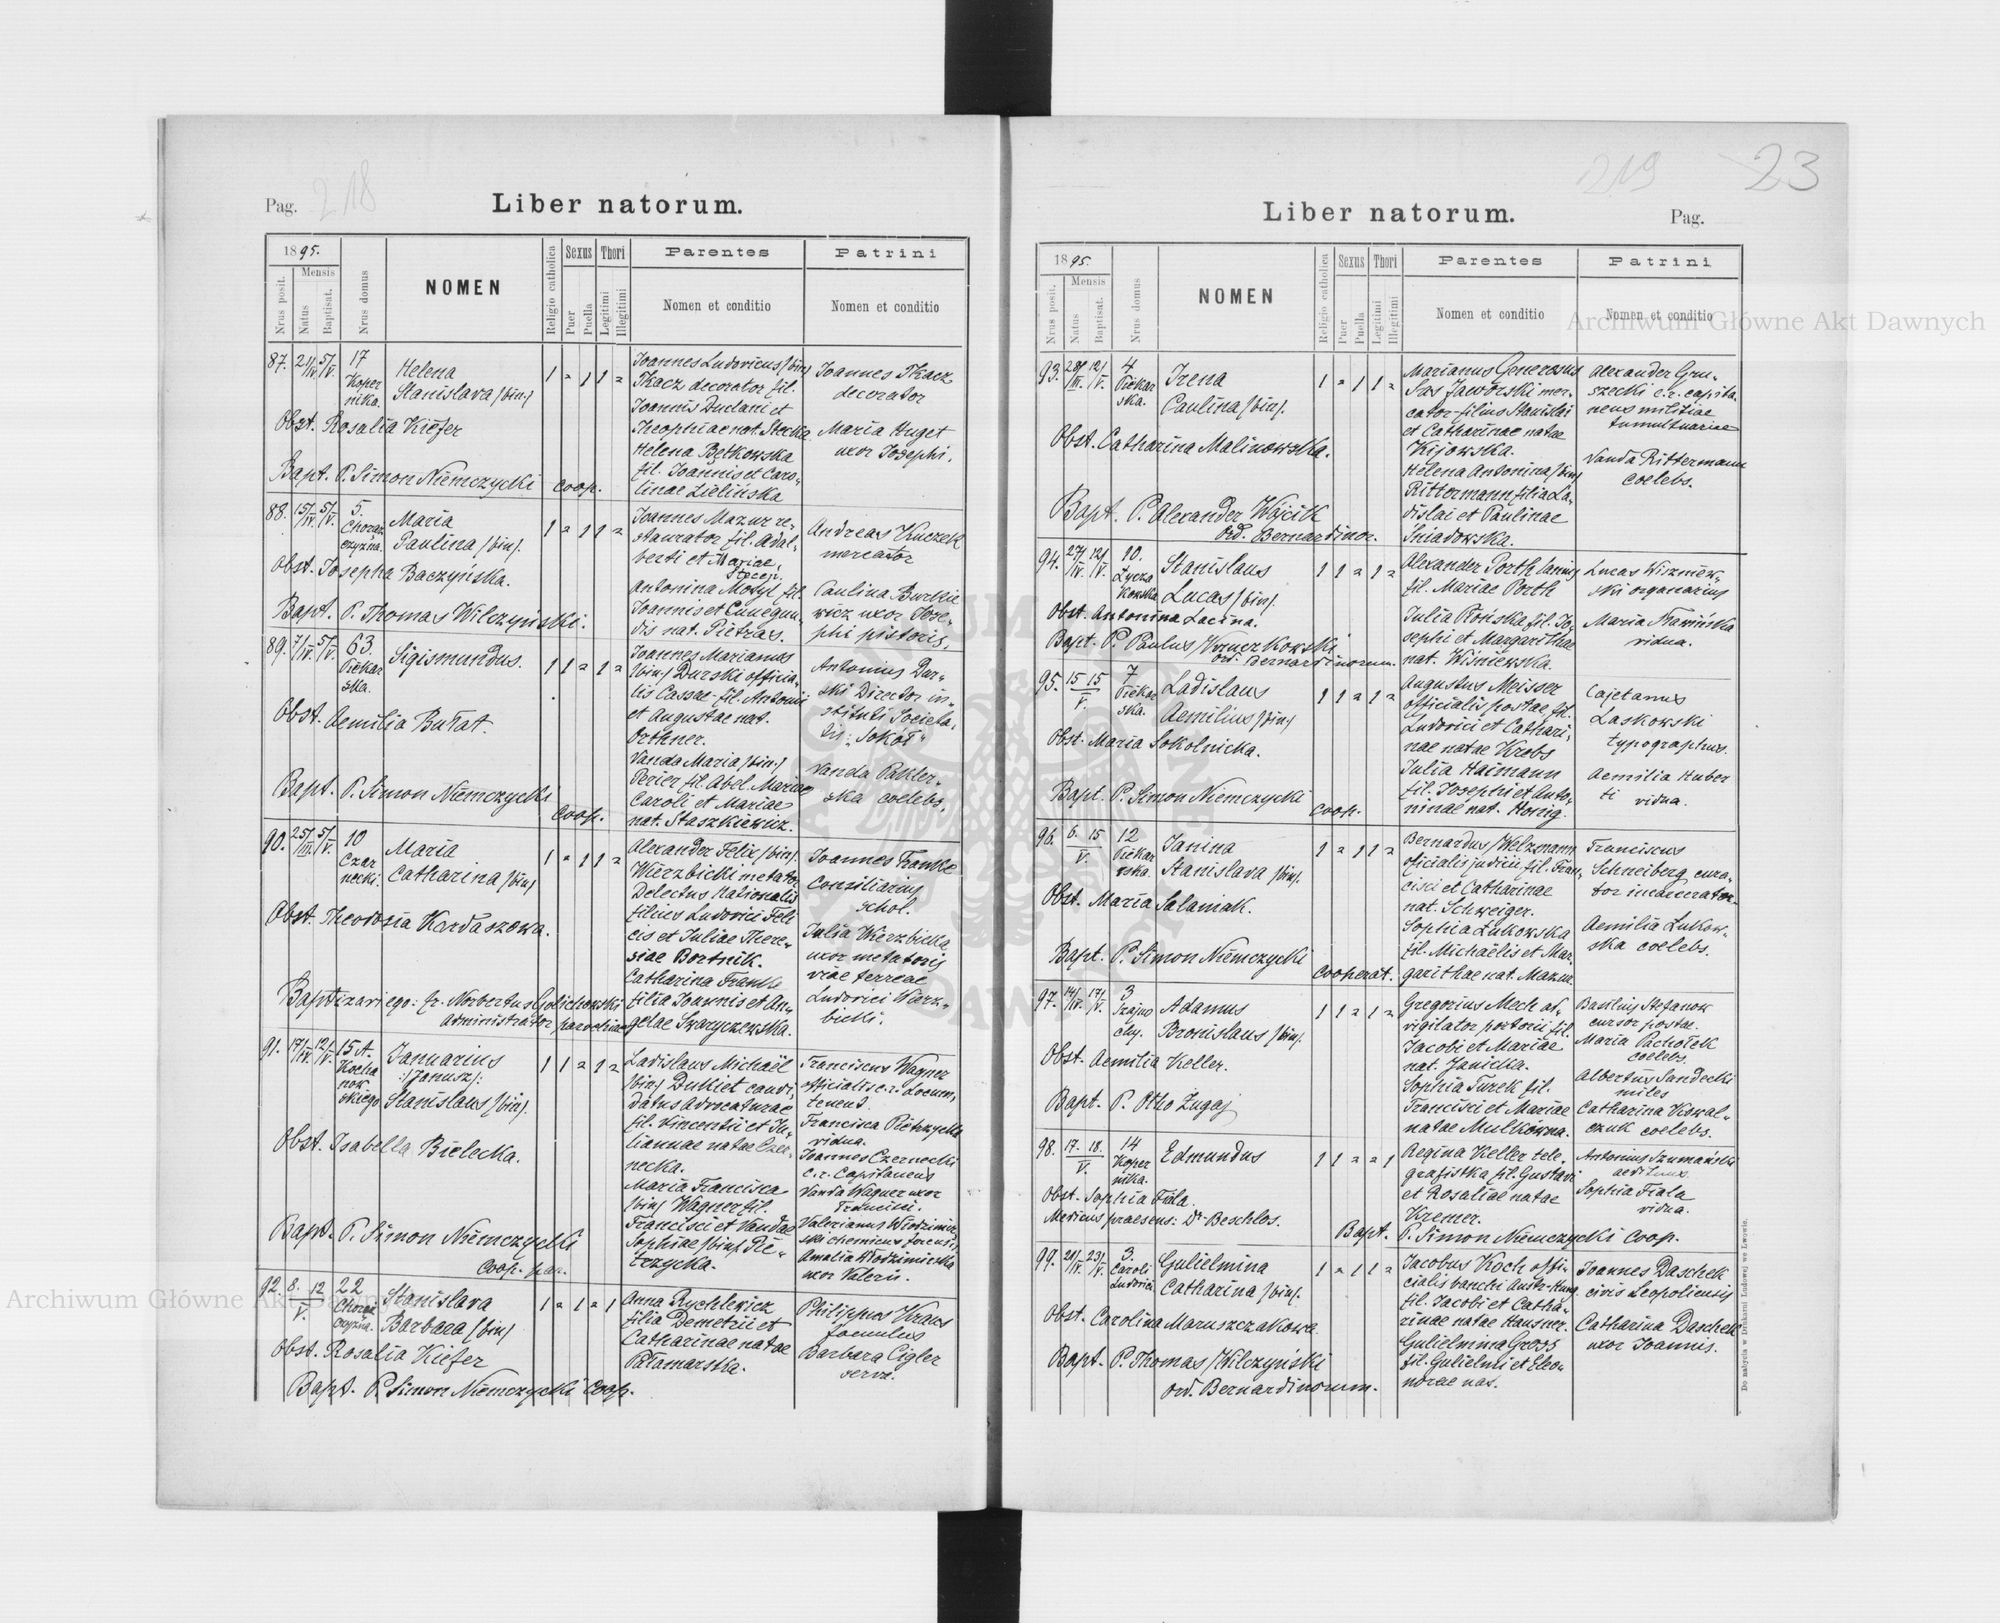 Pag. 218
Liber natorum.
1895.
Nrus posit.
Mensis
Natus
Baptisat.
Nrus domus
NOMEN
Religio catholica
Sexus
Puer
Puella
Thori
Legitimi
Illegitimi
Parentes
Nomen et conditio
Patrini
Nomen et conditio
87. 21/IV. 5/V. 17 Koper nika.
Helena
Stanislava /bin/
1 = 1 1 =
Obst. Rosalia Kiefer
Bapt. P. Simon Niemczycki coop.
Joannes Ludovicus /bin/
Tkacz decorator fil.
Joannis Duclani et
Theophiae nat. Stecka
Helena Bętkowska
fil. Joannis et Caro-
linae Zielińska
Joannes Tkacz
decorator
Maria Huget
uxor Josephi.
88. 15/IV. 5/V. 5. Choraz czyzna.
Maria
Paulina /bin/.
1 = 1 1 =
Obst. Josepha Baczyńska.
Bapt. P. Thomas Wilczyński.
Joannes Mazur re-
staurator fil. Adal-
berti et Mariae,
Antonina Motyl fil.
Joannis et Cunegun-
dis nat. Pietras.
Andreas Kuczek
mercator
Paulina Burkie
wicz uxor Jose-
phi pistoris.
89. 7/IV. 5/V. 63. Piekar ska.
Sigismundus.
1 1 = 1 =
Obst. Aemilia Bułat.
Bapt. P. Simon Niemczycki
coop.
Joannes Marianus
/bin/ Durski officia-
lis Cassae fil. Antonii
et Augustae nat.
Orthner.
Vanda Maria /bin/
Perier fil. Abel. Mariae
Caroli et Mariae
nat. Staszkiewicz.
Antonius Dur-
ski Director in-
stituti Societa-
tis „Sokół"
Vanda Pakler-
ska coelebs.
90. 25/III. 5/V. 10 Czar necki.
Maria
Catharina /bin/
1 = 1 1 =
Obst. Theodosia Kardaszowa.
Baptizavi ego: fr. Norbertus Golichowski
administrator parochiae
Alexander Felix /bin/.
Wierzbicki metator
Delectus Nationalis
filius Ludovici Feli
cis et Juliae There-
siae Bortnik.
Catharina Franke
filia Joannis et An-
gelae Swaryczewska.
Joannes Franke
Consiliarius
schol.
Julia Wierzbicka
uxor metatoris
viae terreae
Ludovici Wierz-
bicki.
91. 17/IV. 12/V. 15 A. Kocha now skiego
Januarius
:/Janusz/:
Stanislaus /bin/.
1 1 = 1 =
Obst. Isabella Bielecka.
Bapt. P. Simon Niemczycki
Coop. par.
Ladislaus Michaël
/bin/ Dukiet candi-
datus Advocaturae
fil. Vincentii et Ju-
liannae natae Cze-
necka.
Maria Francisca
/bin/ Wagner fil.
Francisci et Vandae
Sophiae /bin/ Pie-
trzycka.
Franciscus Wagner
officialis c.r. Locum-
tenent.
Francisca Pietrzycka
vidua.
Joannes Czernecki
c.r. Capitaneus
Vanda Wagner uxor
Francisci.
Valerianus Włodzimir-
ski chemicus forensis
Amalia Włodzimirska
uxor Valerii.
92. 8. 12/V. 22 Choraz czyzna.
Stanislava
Barbara /bin/
1 = 1 = 1
Obst. Rosalia Kiefer
Bapt. P. Simon Niemczycki Coop.
Anna Rychlewicz
filia Demetrii et
Catharinae natae
Pałamarska.
Philippus Kraus
famulus
Barbara Cigler
serva.
219 23
Liber natorum.
Pag.
1895.
Nrus posit.
Mensis
Natus
Baptisat.
Nrus domus
NOMEN
Religio catholica
Sexus
Puer
Puella
Thori
Legitimi
Illegitimi
Parentes
Nomen et conditio
Patrini
Nomen et conditio
93. 28/III. 12/V. 4 Piekar ska.
Irena
Paulina /bin/.
1 = 1 1 =
Obst. Catharina Malinowska.
Bapt. P. Alexander Wójcik
Ord. Bernardinor.
Marianus Generosus
Sas Jaworski mer-
cator filius Stanislai
et Catharinae natae
Kijowska.
Helena Antonina /bin/
Rittermann filia La-
dislai et Paulinae
Śniadowska.
Alexander Gru-
szecki c.r. capita-
neus militiae
tumultuariae
Vanda Rittermann
coelebs.
94. 27/IV. 12/V. 10. Łycza kowska
Stanislaus
Lucas /bin/.
1 1 = 1 =
Obst. Antonina Lacina.
Bapt. P. Paulus Kruczkowski
Ord. Bernardinorum.
Alexander Porth lanius
fil. Mariae Porth
Julia Płońska fil. Jo-
sephi et Margarithae
nat. Wiśniewska.
Lucas Wiszniew-
ski organarius
Maria
vidua.
95. 15 15/V. 7 Piekar ska.
Ladislaus
Aemilius /bin/
1 1 = 1 =
Obst. Maria Sokolnicka.
Bapt. P. Simon Niemczycki
coop.
Augustus Meisser
officialis postae, fil.
Ludovici et Cathari-
nae natae Krebs
Julia Haimann
fil. Josephi et Anto-
ninae nat. Honig.
Cajetanus
Laskowski
typographus.
Aemilia Huber
ti vidua.
96. 6. 15/V. 12 Piekar ska.
Janina
Stanislava /bin/.
1 = 1 1 =
Obst. Maria Salaniak.
Bapt. P. Simon Niemczycki
cooperat.
Bernardus Welzmann
oficialis judicii, fil. Fran-
cisci et Catharinae
nat. Schweiger.
Sophia Łukowska
fil. Michaëlis et Mar-
garithae nat. Mazur.
Franciscus
Schneiberg cura-
tor incarcerator.
Aemilia Łukow-
ska coelebs.
97. 14/IV. 17/V. 3 Szajno chy.
Adamus
Bronislaus /bin/.
1 1 = 1 =
Obst. Aemilia Keller.
Bapt. P. Otho Zugaj
Gregorius Mech ad-
vigilator portorii fil.
Jacobi et Mariae
nat. Janicka.
Sophia Turek fil.
Francisci et Mariae
natae Mulkówna.
Basilius Stefanow
cursor postae.
Maria Pachołek
coelebs.
Albertus Sandecki
miles
Catharina Kowal-
czuk coelebs.
98. 17. 18./V. 14 Koper nika.
Edmundus
1 1 = = 1
Obst. Sophia Fiala.
Medicus praesens: Dr. Beschlos.
Bapt. P. Simon Niemczycki Coop.
Regina Keller tele-
grafistka fil. Gustavi
et Rosaliae natae
Kremer.
Antonius Szumański
aedituus
Sophia Fiala
vidua.
99. 28/IV. 23/V. 3. Caroli Ludovici
Gulielmina
Catharina /bin/.
1 = 1 1 =
Obst. Carolina Maruszczakowa.
Bapt. P. Thomas Wilczyński
Ord. Bernardinorum.
Jacobus Koch offi-
cialis banchi Austr-Hung.
fil. Jacobi et Catha-
rinae natae Hausner.
Gulielmina Gross
fil. Gulielmi et Eleo-
norae nat.
Joannes Daschek
civis Leopoliensis
Catharina Daschek
uxor Joannis.
Do nabycia w Drukarni Ludowej we Lwowie.
Archiwum Główne Akt Dawnych
Archiwum Główne Akt Dawnych